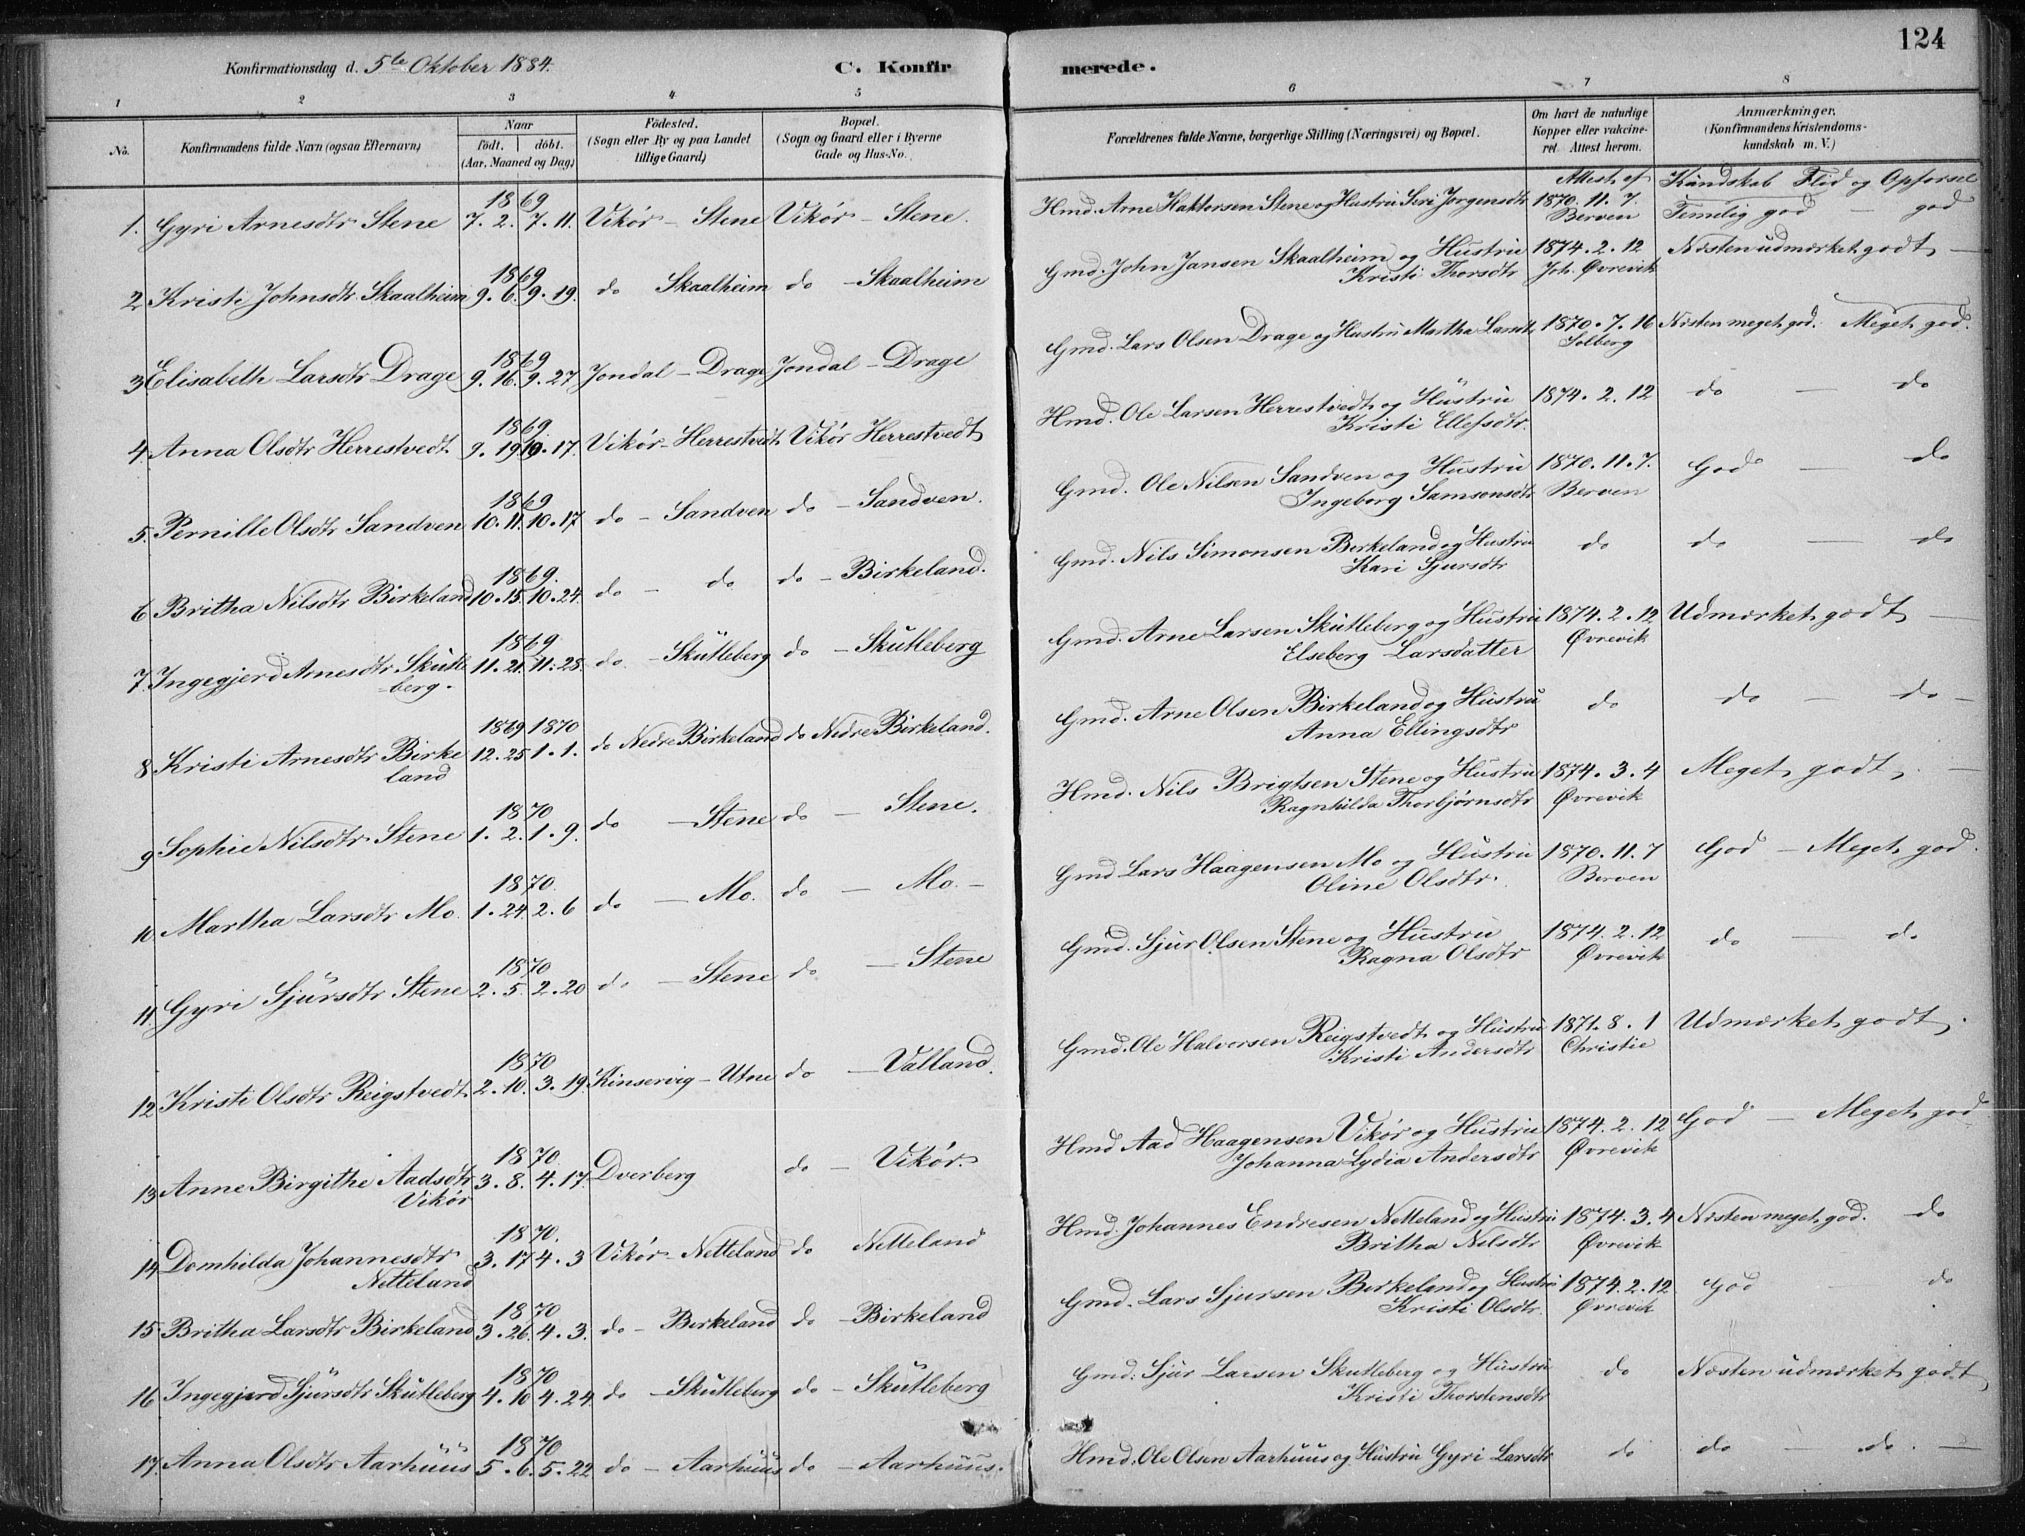 124
Konfirmationsdag d. 5te Oktober 1884.
C. Konfir merede.
1 2 3 4 5 6 7 8
No.
Konfirmandens fulde Navn (ogsaa Efternavn)
Naar
født. døbt.
(Aar, Maaned og Dag)
Fødested.
(Sogn eller By og paa Landet
tillige Gaard)
Bopæl.
(Sogn og Gaard eller i Byerne
Gade og Hus-No.
Forældrenes fulde Navne, borgerlige Stilling (Næringsvei) og Bopæl.
Om havt de naturlige
Kopper eller vakcine-
ret Attest herom.
Anmærkninger.
(Konfirmandens Kristendoms-
kundskab m. V.)
Attest af Kundskab Flid og Opførsel
1869
1. Gyri Arnesdtr Stene 7. 2. 7. 11. Vikør - Stene Vikør - Stene. Hmd. Arne Haktorsen Stene og Hustru Siri Jørgensdtr 1870. 11. 7. Temelig god - god
Berven
1869
2. Kristi Johnsdtr Skaalheim 9. 6. 9. 19. do Skaalheim do - Skaalheim Gmd. John Jansen Skaalheim og Hustru 1874. 2. 12 Næsten udmærket godt -
Kristi Thorsdtr Joh. Øvrevik
1869
3. Elisabeth Larsdtr Drage 9. 16. 9. 27 Jondal - Drage Jondal - Drage Gmd. Lars Olsen Drage og Hustru Martha Lamb. 1870. 7. 16 Næsten meget god. Meget god.
Solberg
1869
4. Anna Olsdtr Herrestvedt 9. 19. 10. 17. Vikør - Herrestvedt Vikør Herrestvedt Hmd. Ole Larsen Herrestvedt og Hustru 1874. 2. 12 do - do
Kristi Ellefsdtr.
1869
5. Pernille Olsdtr Sandven 10. 11. 10. 17 do - Sandven do - Sandven. Gmd. Ole Nilsen Sandven og Hustru 1870. 11. 7. God - do
Ingeborg Samsonsdtr Berven
1869.
6 Britha Nilsdtr Birkeland 10. 15. 10. 24. do - do do - Birkeland. Gmd. Nils Simonsen Berkeland og Hustru do do - do
Kari Sjursdtr
1869
7. Ingegjerd Arnesdtr Skutle 11. 21. 11. 28. do - Skutleberg do - Skutleberg Gmd. Arne Larsen Skutleberg og Hustru 1874. 2. 12 Udmærket godt -
berg. Elseberg Larsdatter Øvrevik
1869 1870
8 Kristi Arnesdtr Birke 12. 25 1. 1. do Nedre Birkeland do Nedre Birkeland. Gmd. Arne Olsen Birkeland og Hustru do do - do -
land Anna Ellingsdtr
1870
9 Sophie Nilsdtr Stene 1. 2. 1. 9. do - Stene do - Stene. Hmd. Nils Brigtsen Stene og Hustru 1874. 3. 4 Meget godt. -
Ragnhilda Thorbjørnsdtr Øvrevik
1870.
10. Martha Larsdtr Mo. 1. 24. 2. 6 do - Mo. do - Mo. - Gmd Lars Haagensen Mo og Hustru 1870. 11. 7 God - Meget god.
Oline Olsdtr. Berven
1870
11. Gyri Sjursdtr Stene 2. 5. 2. 20 do - Stene do - Stene Gmd. Sjur Olsen Stene og Hustru 1874. 2. 12 do - do
Ragna Olsdtr Øvrevik
1870
12 Kristi Olsdtr Reigstvedt 2. 10. 3. 19. Kinservig - Utne do - Valland. Gmd. Ole Halversen Reigstvedt og Hustru 1871. 8. 1 Udmærket godt.
Kristi Andersdtr Christie
1870.
13 Anne Birgithe Aadsdtr 3. 8. 4. 17. Dverberg do - Vikør. Hmd Aad Haagensen Vikør og Hustru 1874. 2. 12 God - Meget god
Vikør Johanna Lydia Andersdtr Øvrevik
1870.
14 Domhilda Johannesdtr 3. 17 4. 3 Vikør - Netteland do Netteland Hmd. Johannes Endresen Netteland og Hustru 1874. 3. 4 Næsten meget god. do
Netteland Britha Nilsdtr Øvrevik
1870
15. Britha Larsdtr Birkeland 3. 26. 4. 3. do - Berkeland do - Birkeland Gmd. Lars Sjursen Berkeland og Hustru 1874. 2. 12 God do
Kristi Olsdtr. Øvrevik
1870
16 Ingegjerd Sjursdtr Skutleberg 4. 10 4. 24. do - Skutleberg do - Skutleberg Gmd. Sjur Larsen Skutleberg og Hustru do Næsten udmærket godt
Kristi Thorstensdtr
1870
17. Anna Olsdtr Aarhuus 5. 6. 5. 22 do - Aarhuus do - Aarhuus. Hmd. Ole Olsen Aarhuus og Hustru Gyri Larsdtr do do - do. -